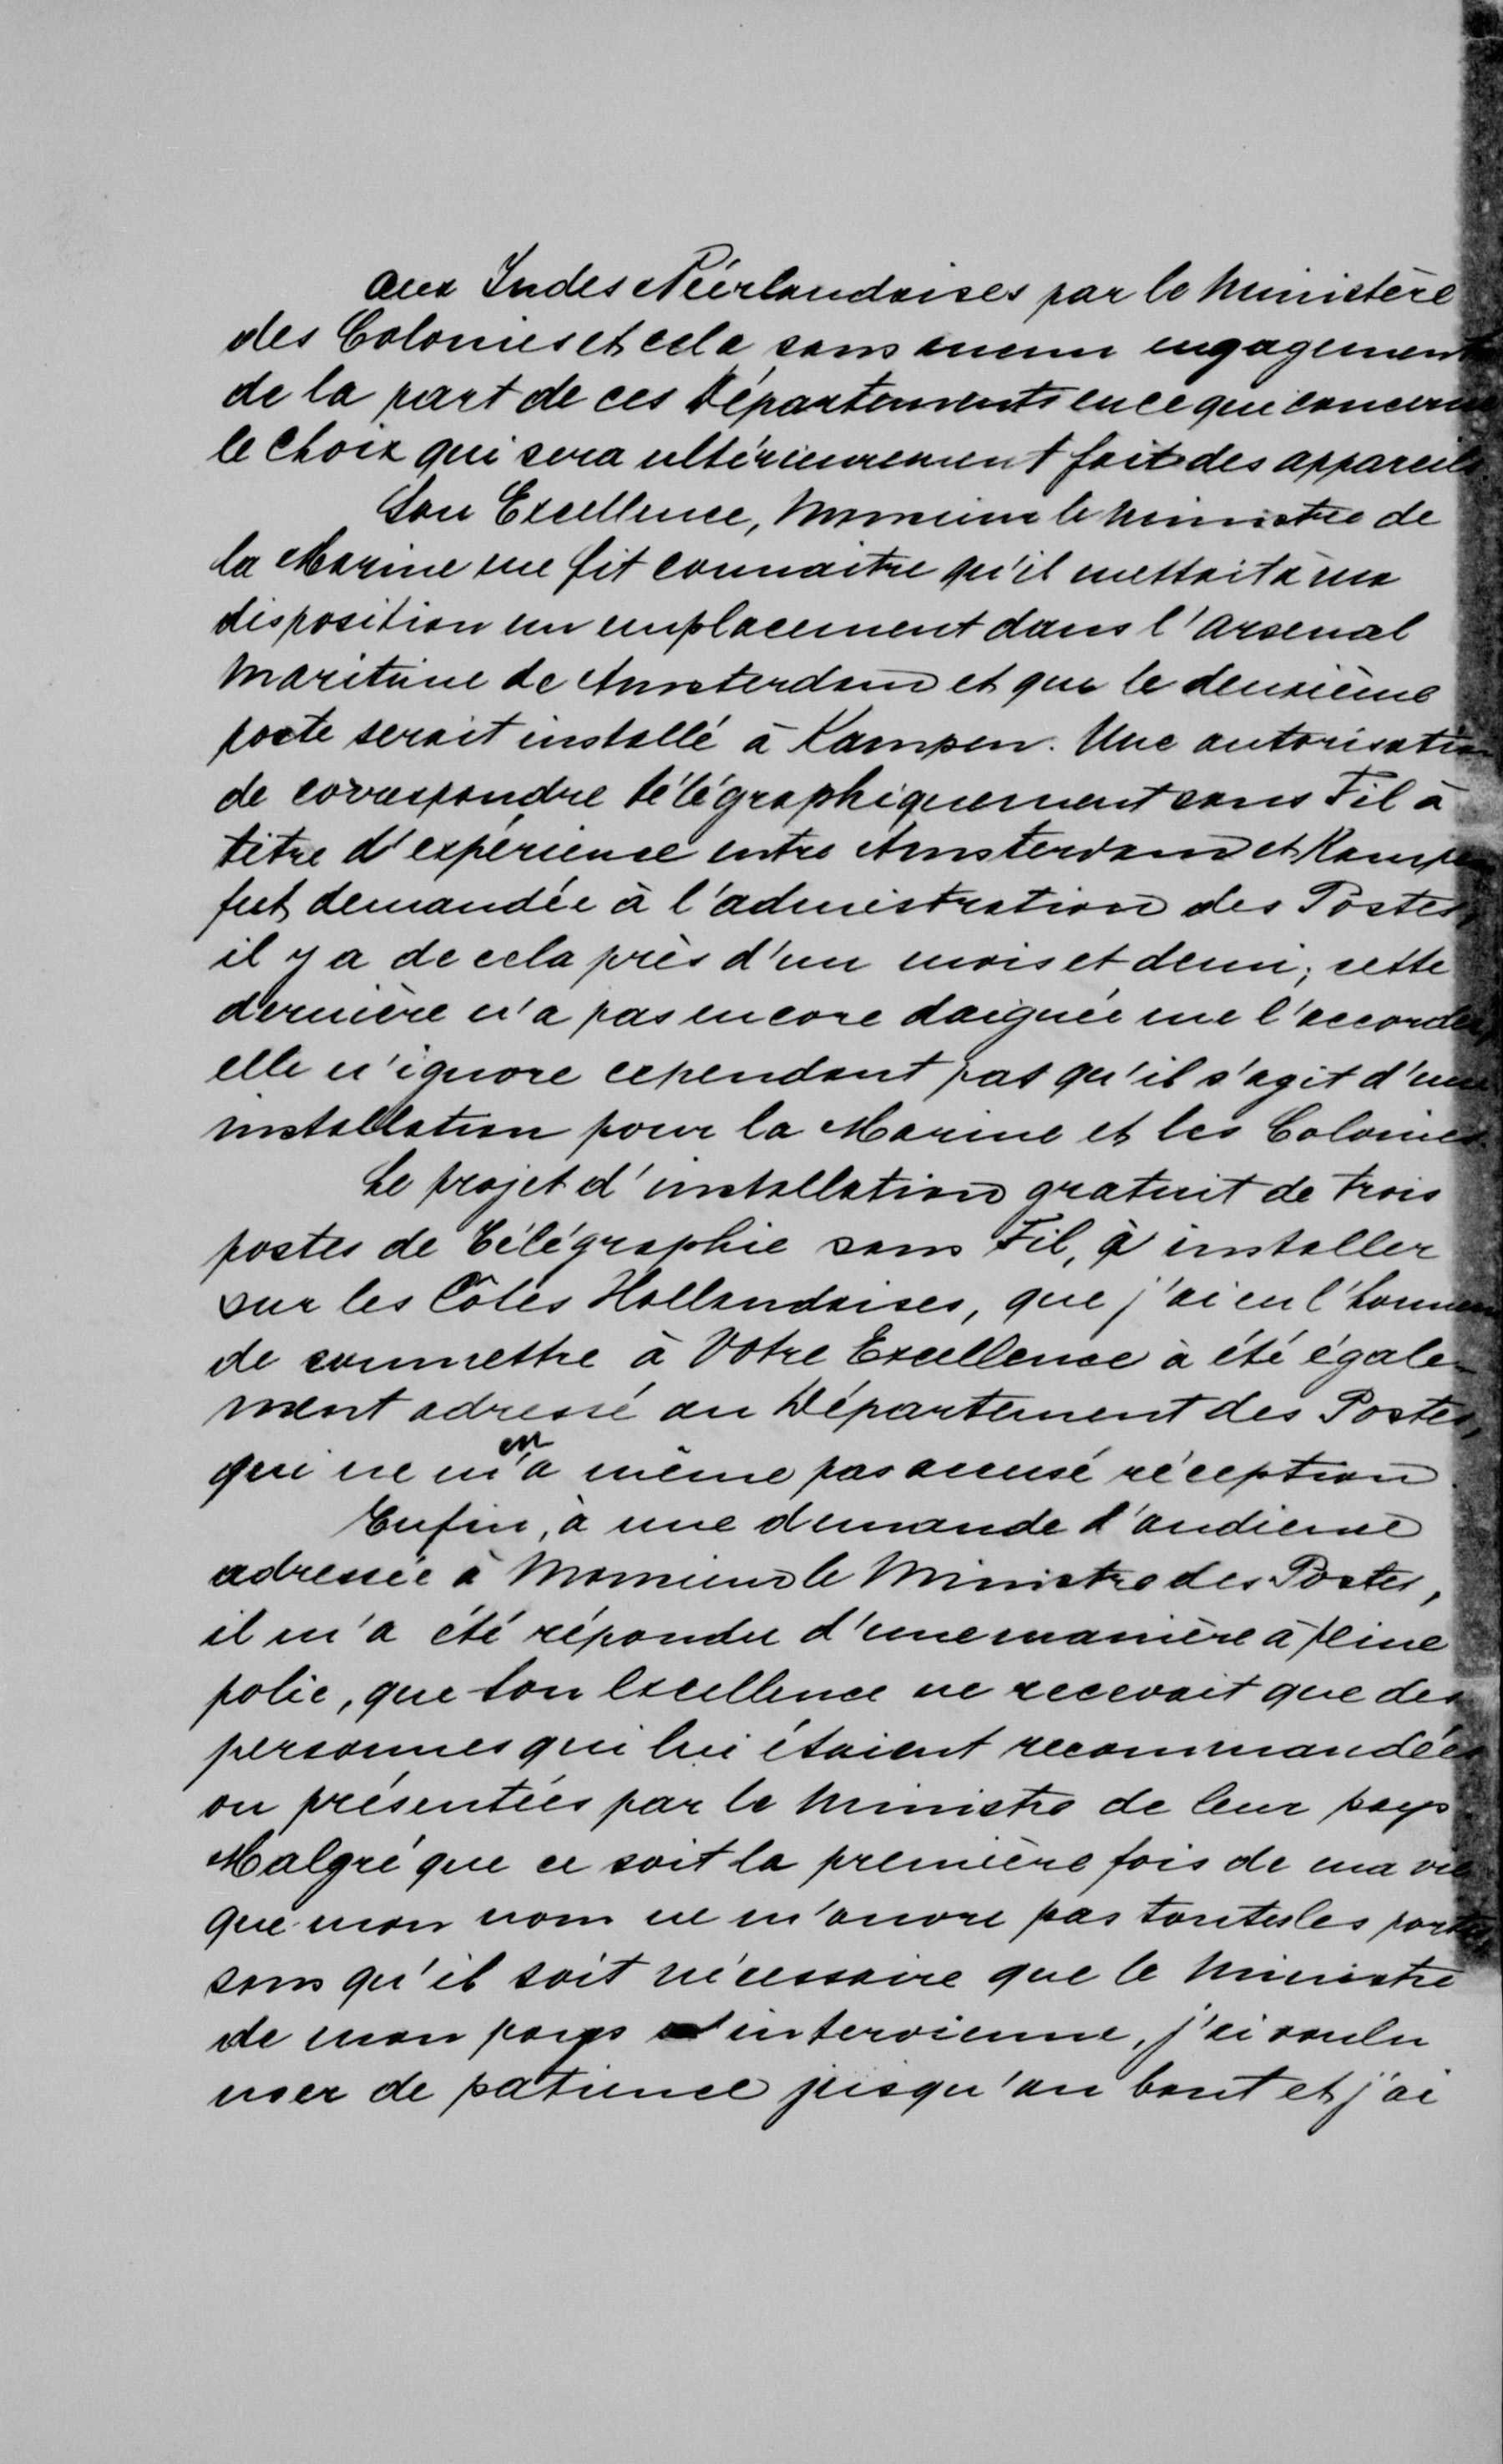 aux Indes Néerlandaises par le Ministère
des Colonies et cela sans aucun engagement
de la part de ces Départements en ce qui concerne
le choix qui sera ultérieurement fait des appareils.
Son Excellence, Monsieur le Ministre de
la Marine me fit connaitre qu'il mettait à ma
disposition un emplacement dans l'Arsenal
Maritime de Amsterdam et que le deuxième
poste serait installé à Kampen. Une autorisation
de correspondre télégraphiquement sans Fil à
titre d'expérience entre Amsterdam et Kampen
fut demandée à l'administration des Postes,
il y a de cela près d'un mois et demi; cette
dernière n'a pas encore daignée me l'accorder,
elle n'ignore cependant pas qu'il s'agit d'une
installation pour la Marine et les Colonies.
Le projet d'installation gratuit de trois
postes de Télégraphie sans Fil, à installer
sur les Côtes Hollandaises, que j'ai eu l'honneur
de soumettre à Votre Excellence à été égale-
ment adressé au Département des Postes,
qui ne m'en a même pas accusé réception.
Enfin, à une demande d'audience
adressée à Monsieur le Ministre des Postes,
il m'a été répondu d'une manière à peine
polie, que Son Excellence ne recevait que des
personnes qui lui étaient recommandées
ou présentées par le Ministre de leur pays.
Malgré que ce soit la première fois de ma vie
que mon nom ne m'ouvre pas toutes les portes,
sans qu'il soit nécessaire que le Ministre
de mon pays intervienne, j'ai voulu
user de patience jusqu'au bout et j'ai